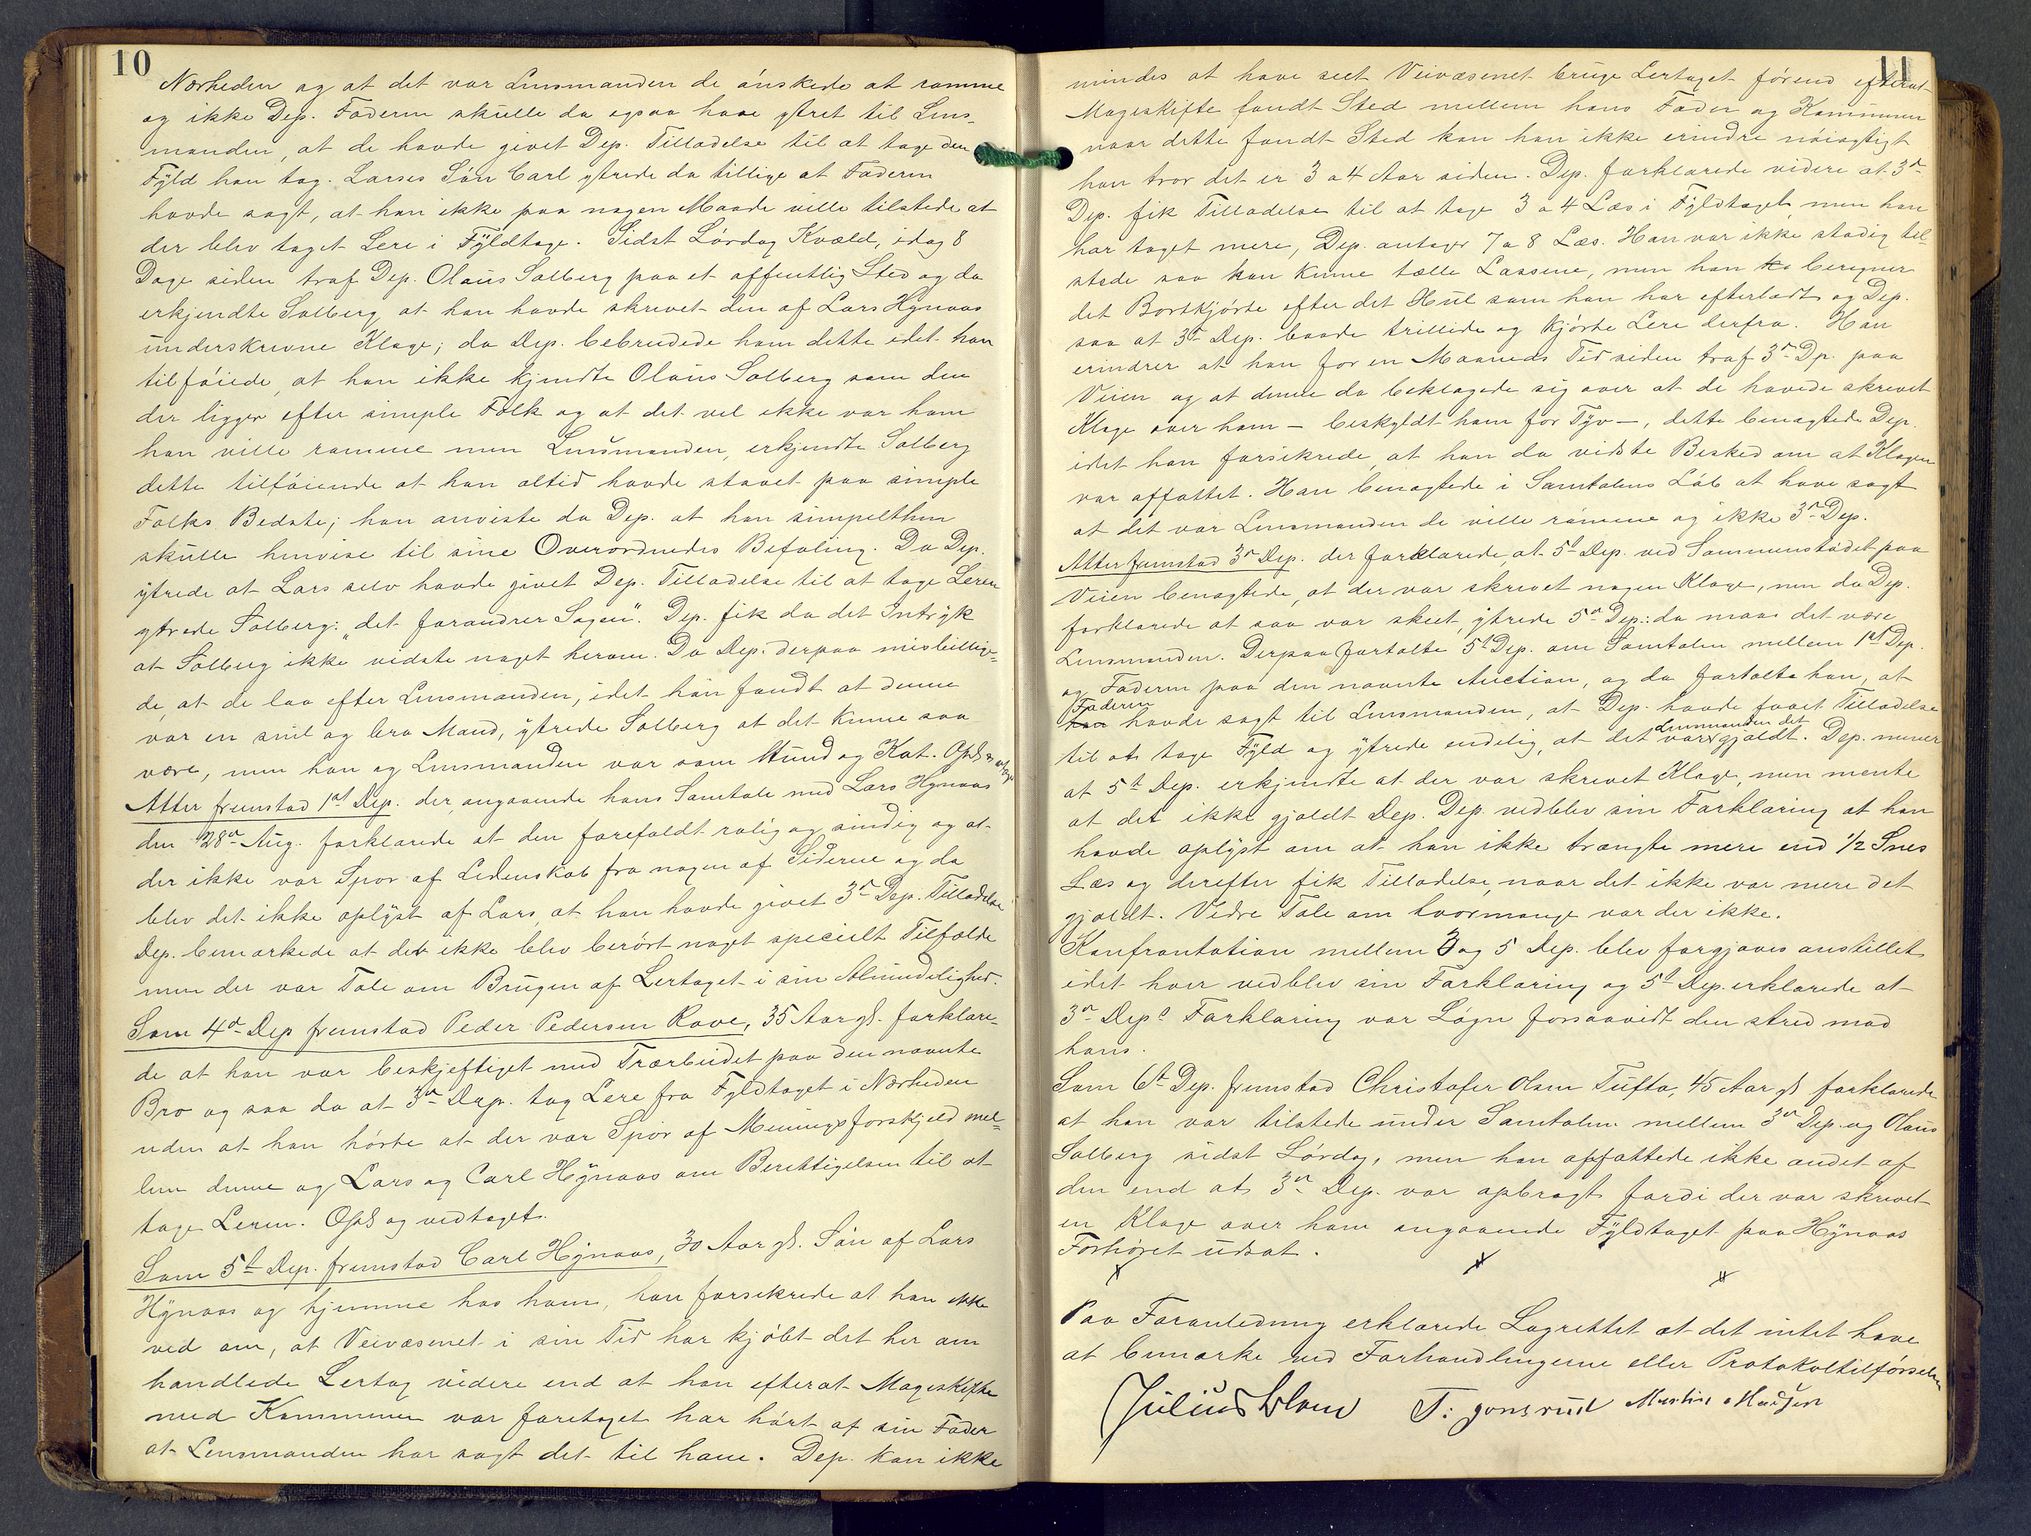 10
Nærheden og at det var Lensmanden de ønskede at ramme
og ikke Dep. Faderen skulle da ogsaa have ytret til Lens-
manden, at de havde givet Dep. Tilladelse til at tage den
Fyld han tog. Larses Søn Carl ytrede da tillige at Faderen
havde sagt, at han ikke paa nogen Maade ville tilstede at
der blev taget Lere i Fyldtage. Sidst Lørdag Kvæld, idag 8
Dage siden traf Dep. Olaus Solberg paa et offentlig Sted og da
erkjendte Solberg at han havde skrevet den af Lars Hynaas
underskrevne Klage; da Dep. bebreidede ham dette idet han
tilføiede, at han ikke kjendte Olaus Solberg som den
der ligger efter simple Folk og at det vel ikke var ham
han ville ramme men Lensmanden, erkjendte Solberg
dette tilføiende at han altid havde staaet paa simple
Folks Bedste; han anviste da Dep. at han simpelthen
skulle henvise til sine Overordnedes Befaling. Da Dep.
ytrede at Lars selv havde givet Dep. Tilladelse til at tage Leren
ytrede Solberg: "det forandrer Sagen". Dep. fik da det Intryk
at Solberg ikke vidste noget herom. Da Dep. derpaa misbillige-
de, at de laa efter Lensmanden, idet han fandt at denne
var en snil og bra Mand, ytrede Solberg at det kunne saa
være, men han og Lensmanden var som Hund og Kat. Opl. &
Atter fremstod 1st Dep. der angaaende hans Samtale med Lars Hynaas
den 28de Aug. forklarede at den forefaldt rolig og sindig og at
der ikke var Spor af Lidenskab fra nogen af Siderne og da
blev det ikke oplyst af Lars, at han havde givet 3die Dep. Tilladelse
Dep. bemærkede at det ikke blev berørt noget specielt Tilfælde
men der var Tale om Brugen af Lertaget i sin Almindelighed.
Som 4de Dep fremstod Peder Pedersen Rove, 35 Aar gl. forklare-
de at han var beskjeftiget med Træarbeidet paa den nævnte
Bro og saa da at 3die Dep. tog Lere fra Fyldtaget i Nærheden
uden at han hørte at der var Spor af Meningsforskjeld mel-
lem denne og Lars og Carl Hynaas om Berettigelsen til at
tage Leren. Opl. og vedtaget.
Som 5te Dep. fremstod Carl Hynaas, 30 Aar gl. Søn af Lars
Hynaas og hjemme hos ham, han forsikrede at han ikke
ved om, at Veivæsenet i sin Tid har kjøbt det her om
handlede Lertag videre end at han efterat Mageskifte
med Kommunen var foretaget har hørt af sin Fader
at Lensmanden har sagt det til ham. Dep. kan ikke
11
mindes at have seet Veivæsenet bruge Lertaget førend efterat
Mageskifte fandt Sted mellem hans Fader og Kommunen
naar dette fandt Sted kan han ikke erindre nøiagtigt
han tror det er 3 a 4 Aar siden. Dep. forklarede videre at 3die
Dep. fik Tilladelse til at tage 3 a 4 Læs i Fyldtaget, men han
har taget mere, Dep. antager 7 a 8 Læs. Han var ikke stadig til
stede saa han kunne tælle Læssene, men han beregner
det Bortkjørte efter det Hul som han har efterladt og Dep.
saa at 3die Dep. baade trillede og kjørte Lere derfra. Han
erindrer at han for en Maaneds Tid siden traf 3die Dp. paa
Veien og at denne da beklagede sig over at de havede skrevet
Klage over ham – beskyldt ham for Tyv –, dette benægtede Dep.
idet han forsikrede, at han da vidste Besked om at Klagen
var affattet. Han benægtede i Samtalens Løb at have sagt
at det var Lensmanden de ville ramme og ikke 3die Dep.
Atter fremstod 3die Dep. der forklarede, at 5te Dep. ved Sammenstødet paa
Veien benægtede, at der var skrevet nogen Klage, men da Dep.
forklarede at saa var skeet, ytrede 5te Dep.: da maa det være
Lensmanden. Derpaa fortalte 5te Dep. om Samtalen mellem 1st Dep.
og Faderen paa den nævnte Auction, og da fortalte han, at
Faderen havde sagt til Lensmanden, at Dep. havde faaet Tilladelse
til at tage Fyld og ytrede endelig, at det var Lensmanden det gjaldt. Dep. mener
at 5te Dep. erkjendte at der var skrevet Klage, men mente
at det ikke gjaldt Dep. Dep. vedblev sin Forklaring at han
havde oplyst om at han ikke trængte mere end 1/2 Snes
Læs og derefter fik Tilladelse, naar det ikke var mere det
gjaldt. Vidre Tale om hvormange var der ikke.
Konfrontation mellem 3 og 5 Dep. blev forgjæves anstillet
idet hver vedblev sin Forklaring og 5te Dep. erklærede at
3die Deps Forklaring var Løgn forsaavidt den stred mod
hans.
Som 6te Dep. fremstod Christofer Olsen Tufta, 45 Aar gl. forklarede
at han var tilstede under Samtalen mellem 3die Dep. og Olaus
Solberg sidst Lørdag, men han opfattede ikke andet af
den end at 3die Dep. var opbragt fordi der var skrevet
en Klage over ham angaaende Fyldtaget paa Hynaas
Forhøret udsat.
Paa Foranledning erklærede Lagrettet at det intet have
at bemærke ved Forhandlingerne eller Protokoltilførselen
Julius Blom T. Jonsrud Martin Madsen